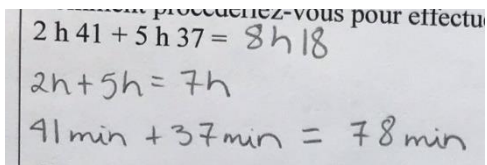 procéderiez-vous pour effectu
2 h 41 + 5 h 37 = 8h18
2h+5h = 7h
41 min + 37 min = 78 min